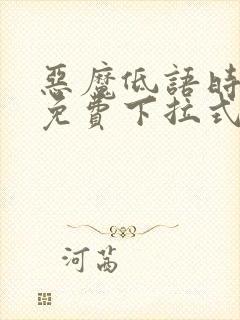 惡魔低語時
免費下拉式
河芮